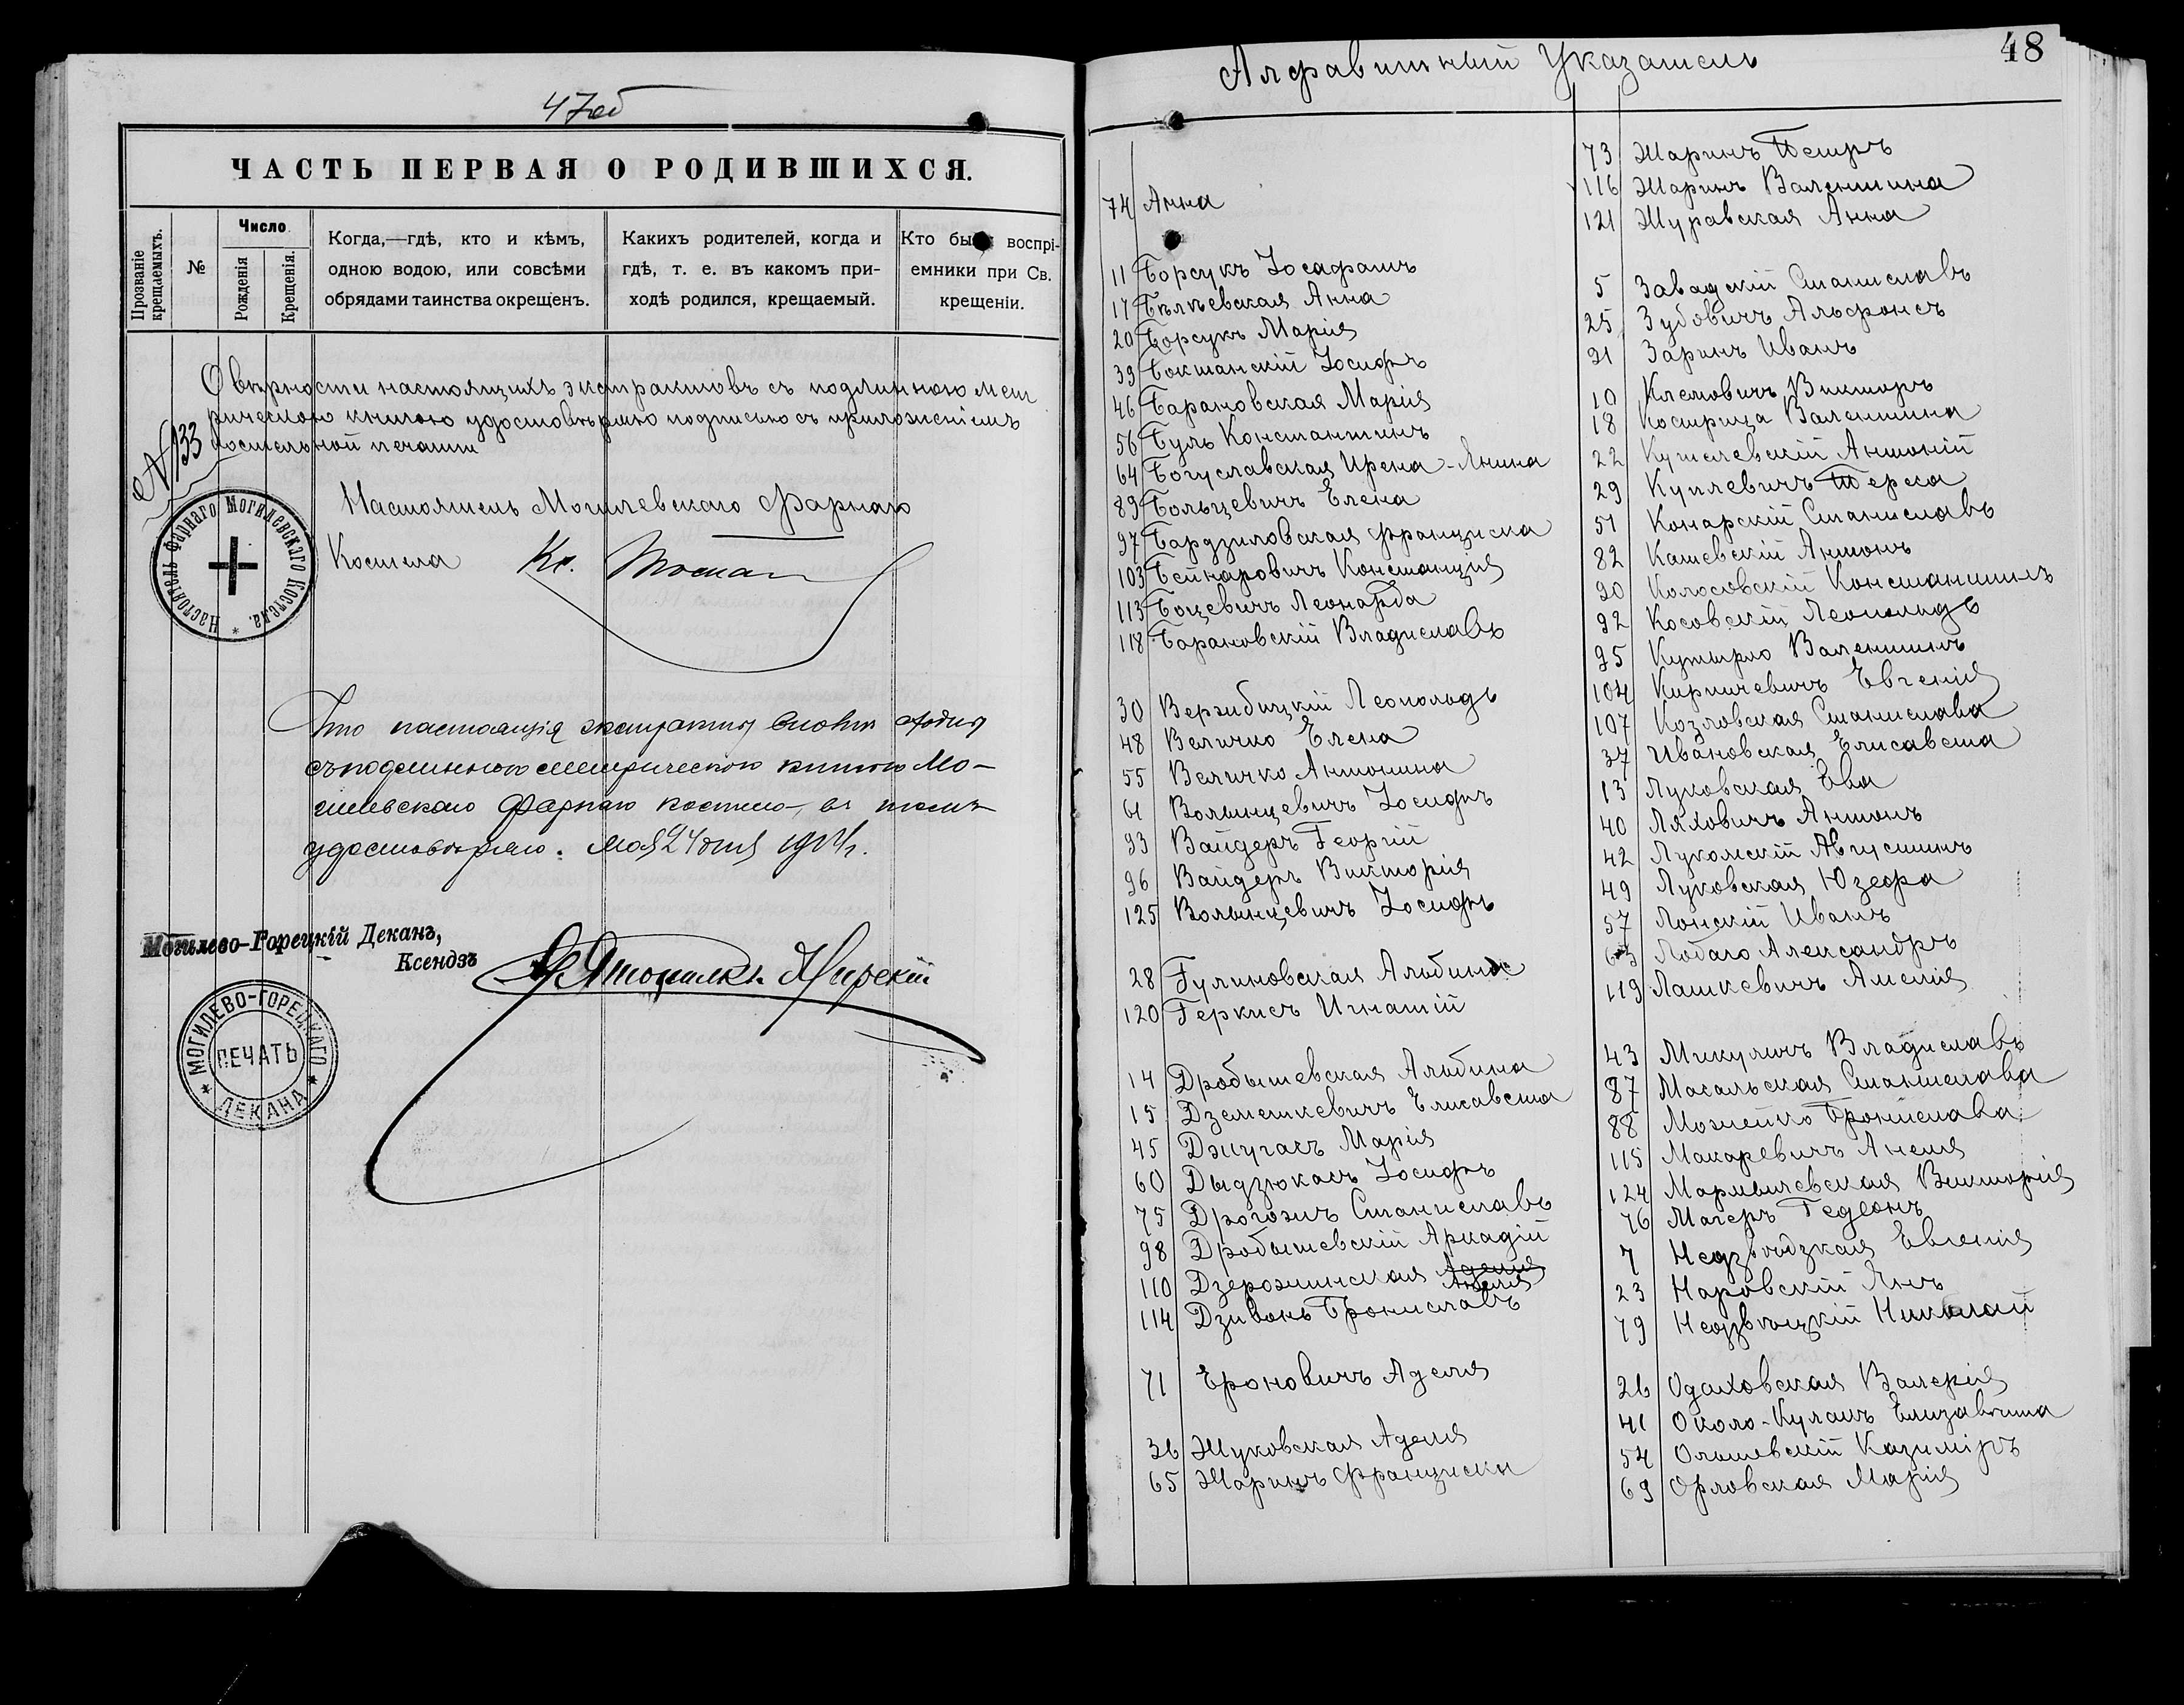 47об
ЧАСТЬ ПЕРВАЯ О РОДИВШИХСЯ.
Прозваніе крещаемыхъ.
№
Число
Рожденія
Крещенія.
Когда,—гдѣ, кто и кѣмъ,
одною водою, или совсѣми
обрядами таинства окрещенъ.
Какихъ родителей, когда и
гдѣ, т. е. въ какомъ при-
ходѣ родился, крещаемый.
Кто были воспрі-
емники при Св.
крещеніи.
О вѣрности настоящихъ экстрактовъ съ подлинною мет
рическою книгою удостовѣряю подписью съ приложеніемъ
костельной печати
№ 133
Настоятель Могилевскаго Фарнаго
Костела Кс.
Настоятель Фарнаго Могилевскаго Костела.
Что настоящія экстракты сходны
съ подлинною метрическою книгою Мо-
гилевскаго Фарнаго костела, въ томъ
удостовѣряю. Мая 24 дня
Могилево-Горецкій Деканъ,
Ксендзъ
МОГИЛЕВО-ГОРЕЦКАГО ДЕКАНА
ПЕЧАТЬ
48
Алфавитный Указатель
74 Анна
11 Борсукъ Іосафатъ
17 Бѣлѣевская Анна
20 Борсукъ Марія
39 Бокшанскій Іосифъ
46 Барановская Марія
56 Буль Константинъ
64 Богуславская Ирена-Янина
89 Больцевичъ Елена
97 Бардзиловская Франциска
103 Бейнаровичъ Констанція
113 Боцевичъ Леонарда
118 Барановскій Владиславъ
30 Вержбицкій Леопольдъ
48 Величко Елена
55 Величко Антонина
61 Волынцевичъ Іосифъ
93 Вайдеръ Георгій
96 Вайдеръ Викторія
125 Волынцевичъ Іосифъ
28 Гулиновская Альбина
120 Геркисъ Игнатій
14 Дробышевская Альбина
15 Дземешкевичъ Елисавета
45 Джугасъ Марія
60 Дыдзюкасъ Іосифъ
75 Дрогозичъ Станиславъ
98 Дробышевскій Аркадій
110 Дзерожинская Аделія Анеля
114 Дзивонъ Брониславъ
71 Ероновичъ Аделя
36 Жуковская Аделя
65 Жаринъ Франциска
73 Жаринъ Петръ
116 Жаринъ Валентина
121 Журавская Анна
5 Завадскій Станиславъ
25 Зубовичъ Альфонсъ
91 Заринъ Иванъ
10 Клемовичъ Викторъ
18 Кострица Валентина
22 Кугилевскій Антоній
29 Куплевичъ Тереса
51 Конарскій Станиславъ
82 Кашевскій Антонъ
90 Колосовскій Константинъ
92 Косовскій Леопольдъ
95 Кутырло Валентинъ
104 Кирпичевичъ Евгенія
107 Козловская Станислава
37 Ивановская Елисавета
13 Луковская Ева
40 Ляховичъ Антонъ
42 Лукомскій Августинъ
49 Луковская Юзефа
57 Лонскій Иванъ
63 Лобаго Александръ
119 Лашкевичъ Амелія
43 Микуличъ Владиславъ
87 Масальская Станислава
88 Можейко Бронислава
115 Макаревичъ Анеля
124 Мармылевская Викторія
76 Магеръ Гедеонъ
7 Недзвѣдзкая Евгенія
23 Наровскій Янъ
79 Недзвѣцкій Николай
26 Одаховская Валерія
41 Около-Кулакъ Елизавета
54 Ольшевскій Казиміръ
69 Орловская Марія